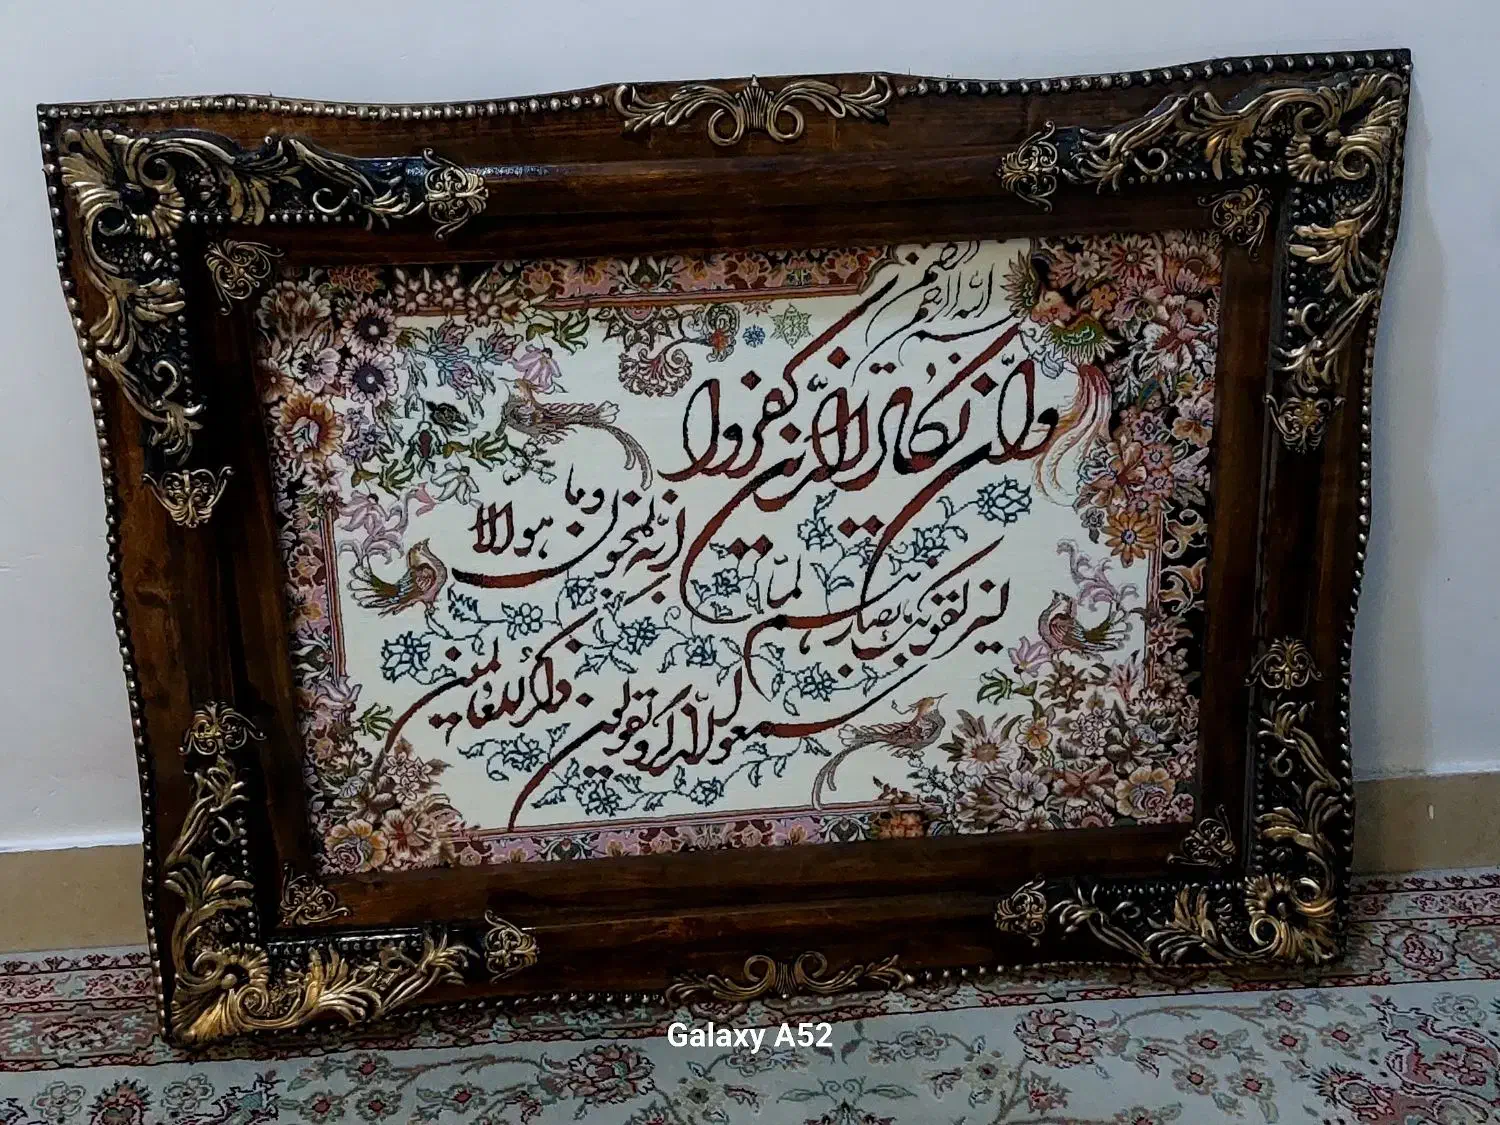 بسم الله الرحمن الرحیم
وان یکاد الذین کفروا
لیزلقونک بابصارهم لما
سمعوا الذکر و یقولون
انه لمجنون وما هو الا
ذکر للعالمین
Galaxy A52